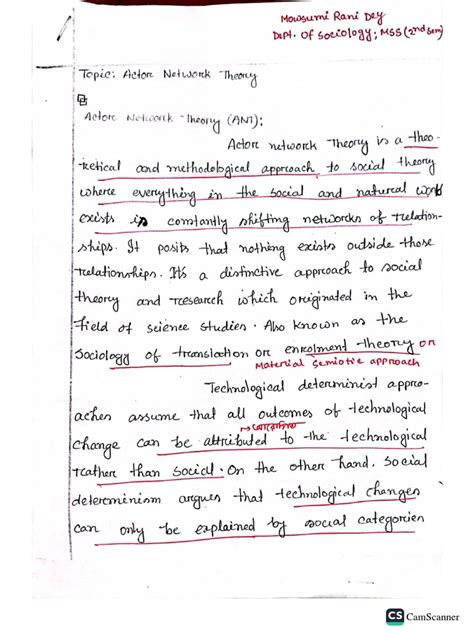 Mowsumi Rani Dey
Dept. Of Sociology; MSS (2nd sem)
Topic: Actor Network Theory
Actor Network Theory (ANT):
Actor network Theory is a theo-
retical and methodological approach to social theory
where everything in the social and natural world
exists in constantly shifting networks of relation-
ships. It posits that nothing exists outside those
relationships. It's a distinctive approach to social
theory and research which originated in the
field of science studies. Also known as the
sociology of translation or enrolment theory or
material semiotic approach
Technological determinist appro-
aches assume that all outcomes of technological
change can be attributed to the technological
rather than social. On the other hand, social
determinism argues that technological changes
can only be explained by social categories
CS CamScanner